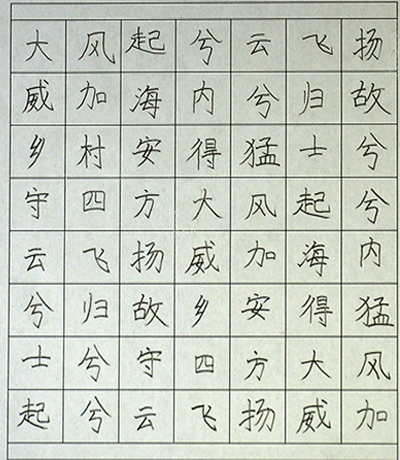 大风起兮云飞扬
威加海内兮归故
乡村安得猛士兮
守四方大风起兮
云飞扬威加海内
兮归故乡安得猛
士兮守四方大风
起兮云飞扬威加